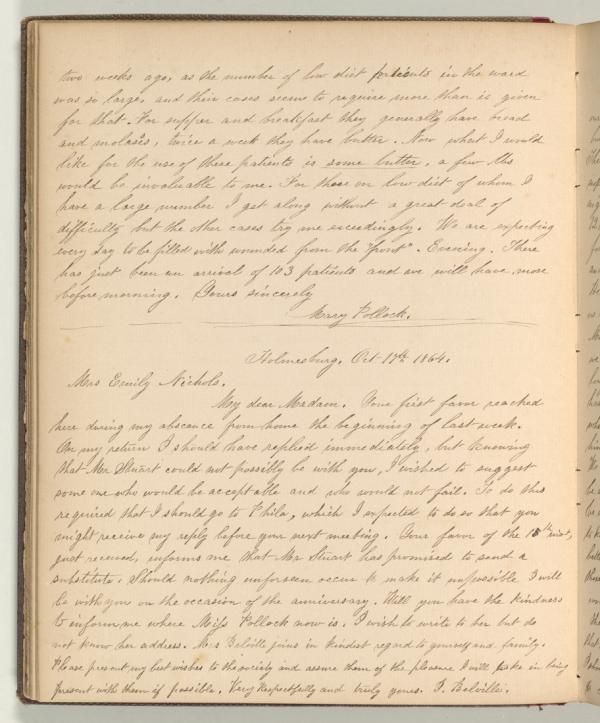 two weeks ago, as the number of low diet patients in the ward
was so large, and their cases seem to require more than is given
for that. For supper and breakfast they generally have bread
and molases, twice a week they have butter. Now what I would
like for the use of these patients is some butter, a few lbs
would be invaluable to me. For those on low diet of whom I
have a large number I get along without a great deal of
difficulty but the other cases try me exceedingly. We are expecting
every day to be filled with wounded from the "front". Evening. There
has just been an arrival of 103 patients and we will have more
before morning. Yours sincerely
Mary Pollock.
Holmesburg, Oct 17th 1864.
Mrs Emily Nichols.
My dear Madam. Your first favor reached
here during my abscence from home the beginning of last week.
On my return I should have replied immediately, but knowing
that Mr Stuart could not possibly be with you, I wished to suggest
some one who would be acceptable and who would not fail. To do this
required that I should go to Phila, which I expected to do so that you
might receive my reply before your next meeting. Your favor of the 15th inst,
just received, informs me that Mr Stuart has promised to send a
substitute. Should nothing unforseen occur to make it impossible I will
be with you on the occasion of the anniversary. Will you have the kindness
to inform me where Miss Pollock now is. I wish to write to her but do
not know her address. Mrs Belville joins in kindest regard to yourself and family.
Please present my best wishes to the society and assure them of the pleasure I will take in being
present with them if possible. Very Respectfully and truly yours. J. Belville.